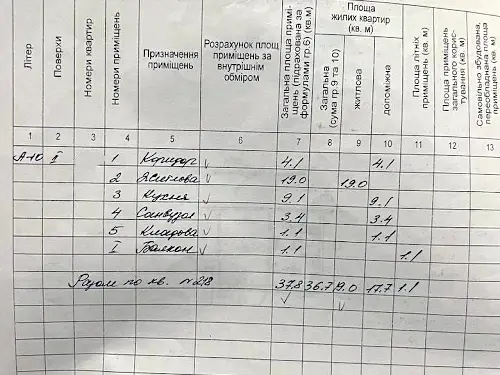 Літер
Поверхи
Номери квартир
Номери приміщень
Призначення приміщень
Розрахунок площ приміщень за внутрішнім обміром
Загальна площа приміщень (підрахована за формулами гр.6) (кв.м)
Площа жилих квартир (кв. м)
Загальна (сума гр 9 та 10)
житлова
допоміжна
Площа літніх приміщень (кв. м)
Площа приміщень загального користування (кв. м)
Самовільно збудована, переобладнана площа приміщень (кв. м)
1 2 3 4 5 6 7 8 9 10 11 12 13
А-10 ІІ 1 Коридор 4.1 4.1
2 Житлова 19.0 19.0
3 Кухня 9.1 9.1
4 Санвузол 3.4 3.4
5 Кладова 1.1 1.1
I Балкон 1.1 1.1
Разом по кв. №218 37.8 36.7 19.0 17.7 1.1